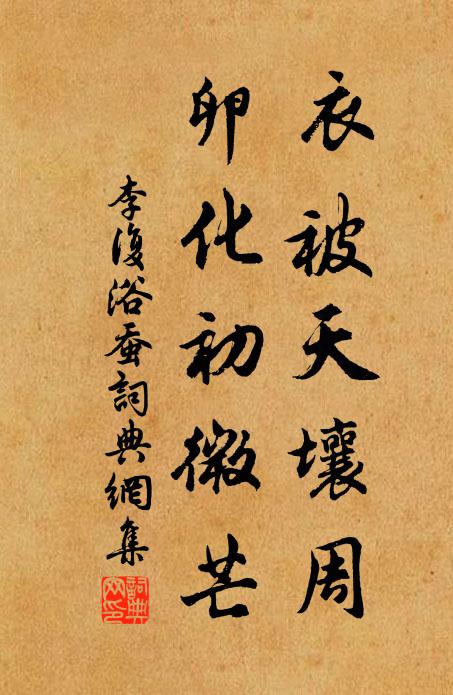 衣被天壤周
卵化初微芒
李復浴蚕詞典網集
詞典網印